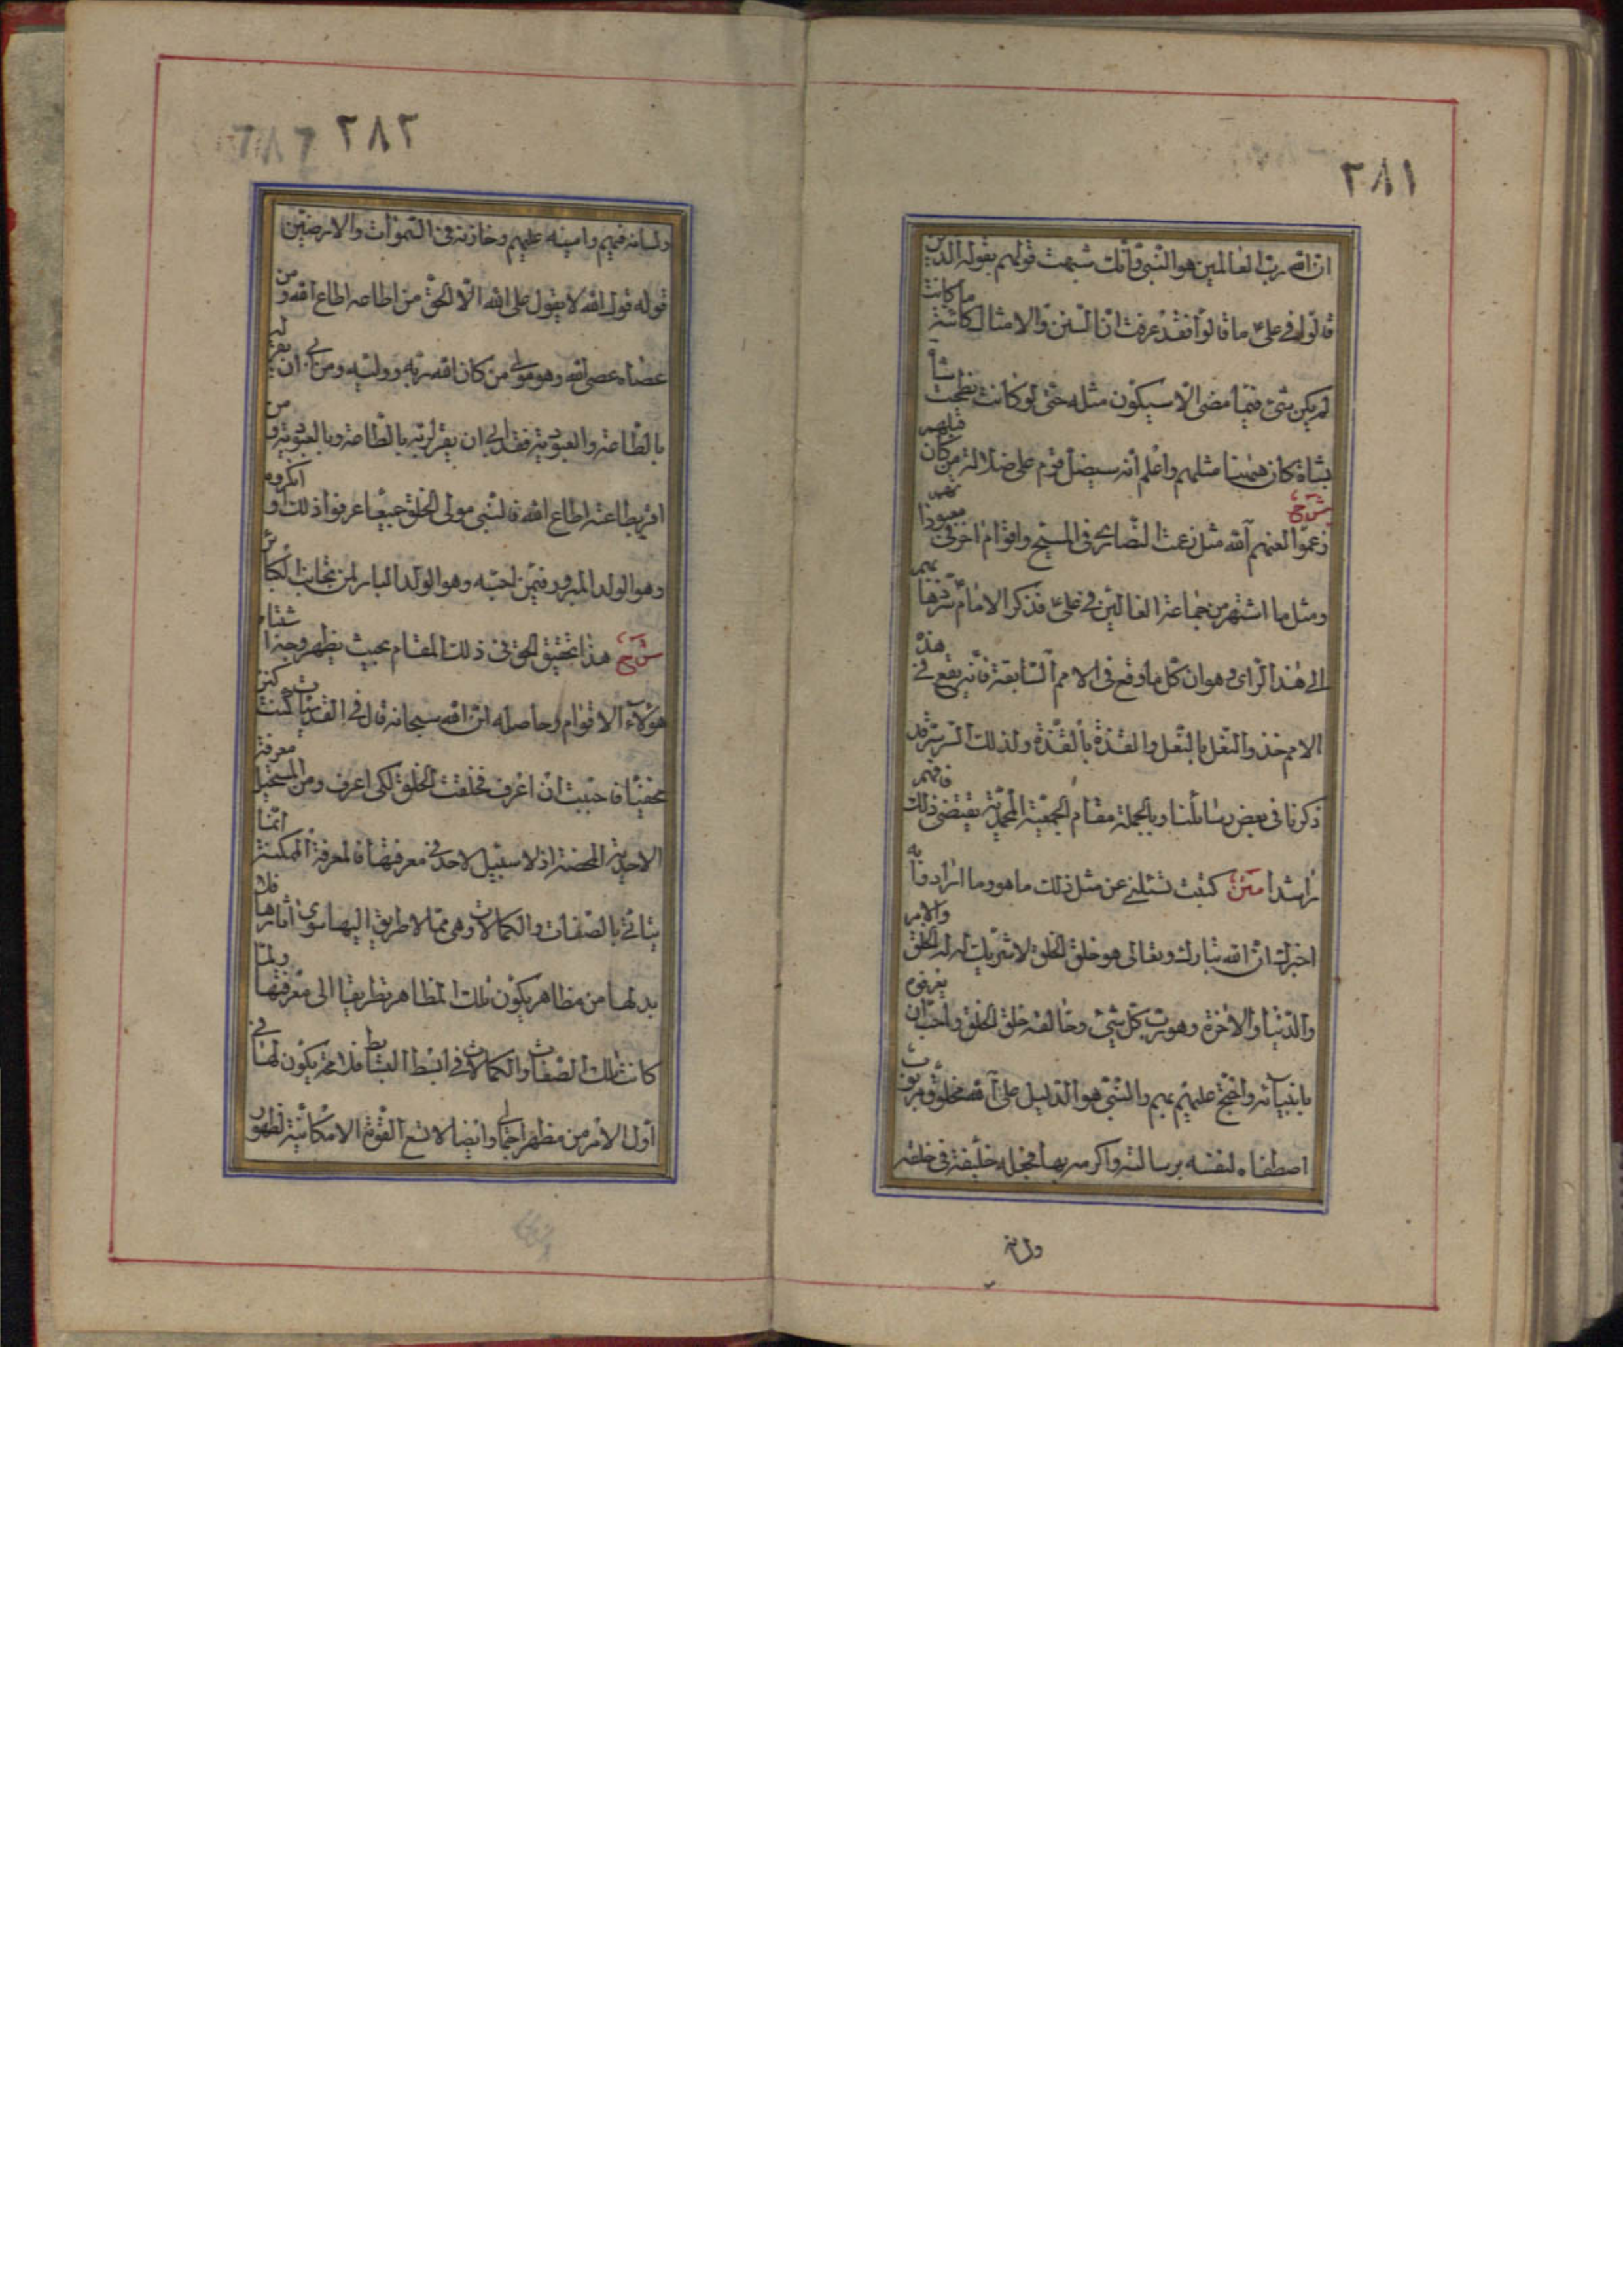 ٢٨١
ان الله رب العالمين هو النبي وانك شبهت قولهم بقوله الذين
قالوا في على ع ما قالوا فقد عرفت ان السنن والامثال كائنة ما كانت
لم يكن شئ فيما مضى الا سيكون مثله حتى لو كانت نطحت شاة
بشاة كان ههنا مثلهم واعلم انه سيضل قوم على ضلالة من كان قبلهم
شرح زعموا لعنهم الله مثل زعمت النصارى في المسيح واقوام اخر في معبود
ومثل ما اشتهر من جماعة الغالين في على ع فذكر الامام
الى هذا الراى وهو ان كل ما وقع في الامم السابقة فانه يقع في هذه
الامم حذو النعل بالنعل والقذة بالقذة ولذلك السر قد
ذكرنا في بعض رسائلنا وبالجملة مقام الجمعية المحمدية يقتضى ذلك فافهم
راشدا متن كتبت تسئلني عن مثل ذلك ما هو وما ارادوا به
اخبرك ان الله تبارك وتعالى هو خلق الخلق لا شريك له له الخلق والامر
والدنيا والاخرة وهو رب كل شئ وخالقه خلق الخلق واحب ان يعرفوه
بانبيائه واحتج عليهم بهم والنبي هو الدليل على الله مخلوق مربوب
اصطفاه لنفسه برسالته واكرمه بها فجعله خليفته في خلقه
ولسانه
٢٨٢
ولسانه فيهم وامينه عليهم وخازنه في السموات والارضين
قوله قول الله لا يقول على الله الا الحق من اطاعه اطاع الله ومن
عصاه عصى الله وهو مولى من كان الله ربه ووليه ومن ابى ان يقر له
بالطاعة والعبودية فقد ابى ان يقر لربه بالطاعة وبالعبودية ومن
اقر بطاعته اطاع الله فالنبي مولى الخلق جميعا عرفوا ذلك او انكروه
وهو الوالد المبرور فمن احبه وهو الولد البار لمن يجانب الكبائر
شرح هذا تحقيق الحق في ذلك المقام بحيث يظهر وجه اشتباه
هؤلاء الاقوام وحاصله ان الله سبحانه قال في القدسيات كنت كنزا
مخفيا فاحببت ان اعرف فخلقت الخلق لكى اعرف ومن المستحيل معرفة
الاحدية المحضة اذ لا سبيل لاحد في معرفتها فالمعرفة الممكنة انما
يتاتى بالصفات والكمالات وهى مما لا طريق اليها سوى اثارها فلا
بد لها من مظاهر يكون تلك المظاهر طريقا الى معرفتها ولما
كانت تلك الصفات والكمالات في ابسط البسائط فلا محة يكون لها في
اول الامر من مظهر اجمالى وايضا لا تسع القوة الامكانية لظهور